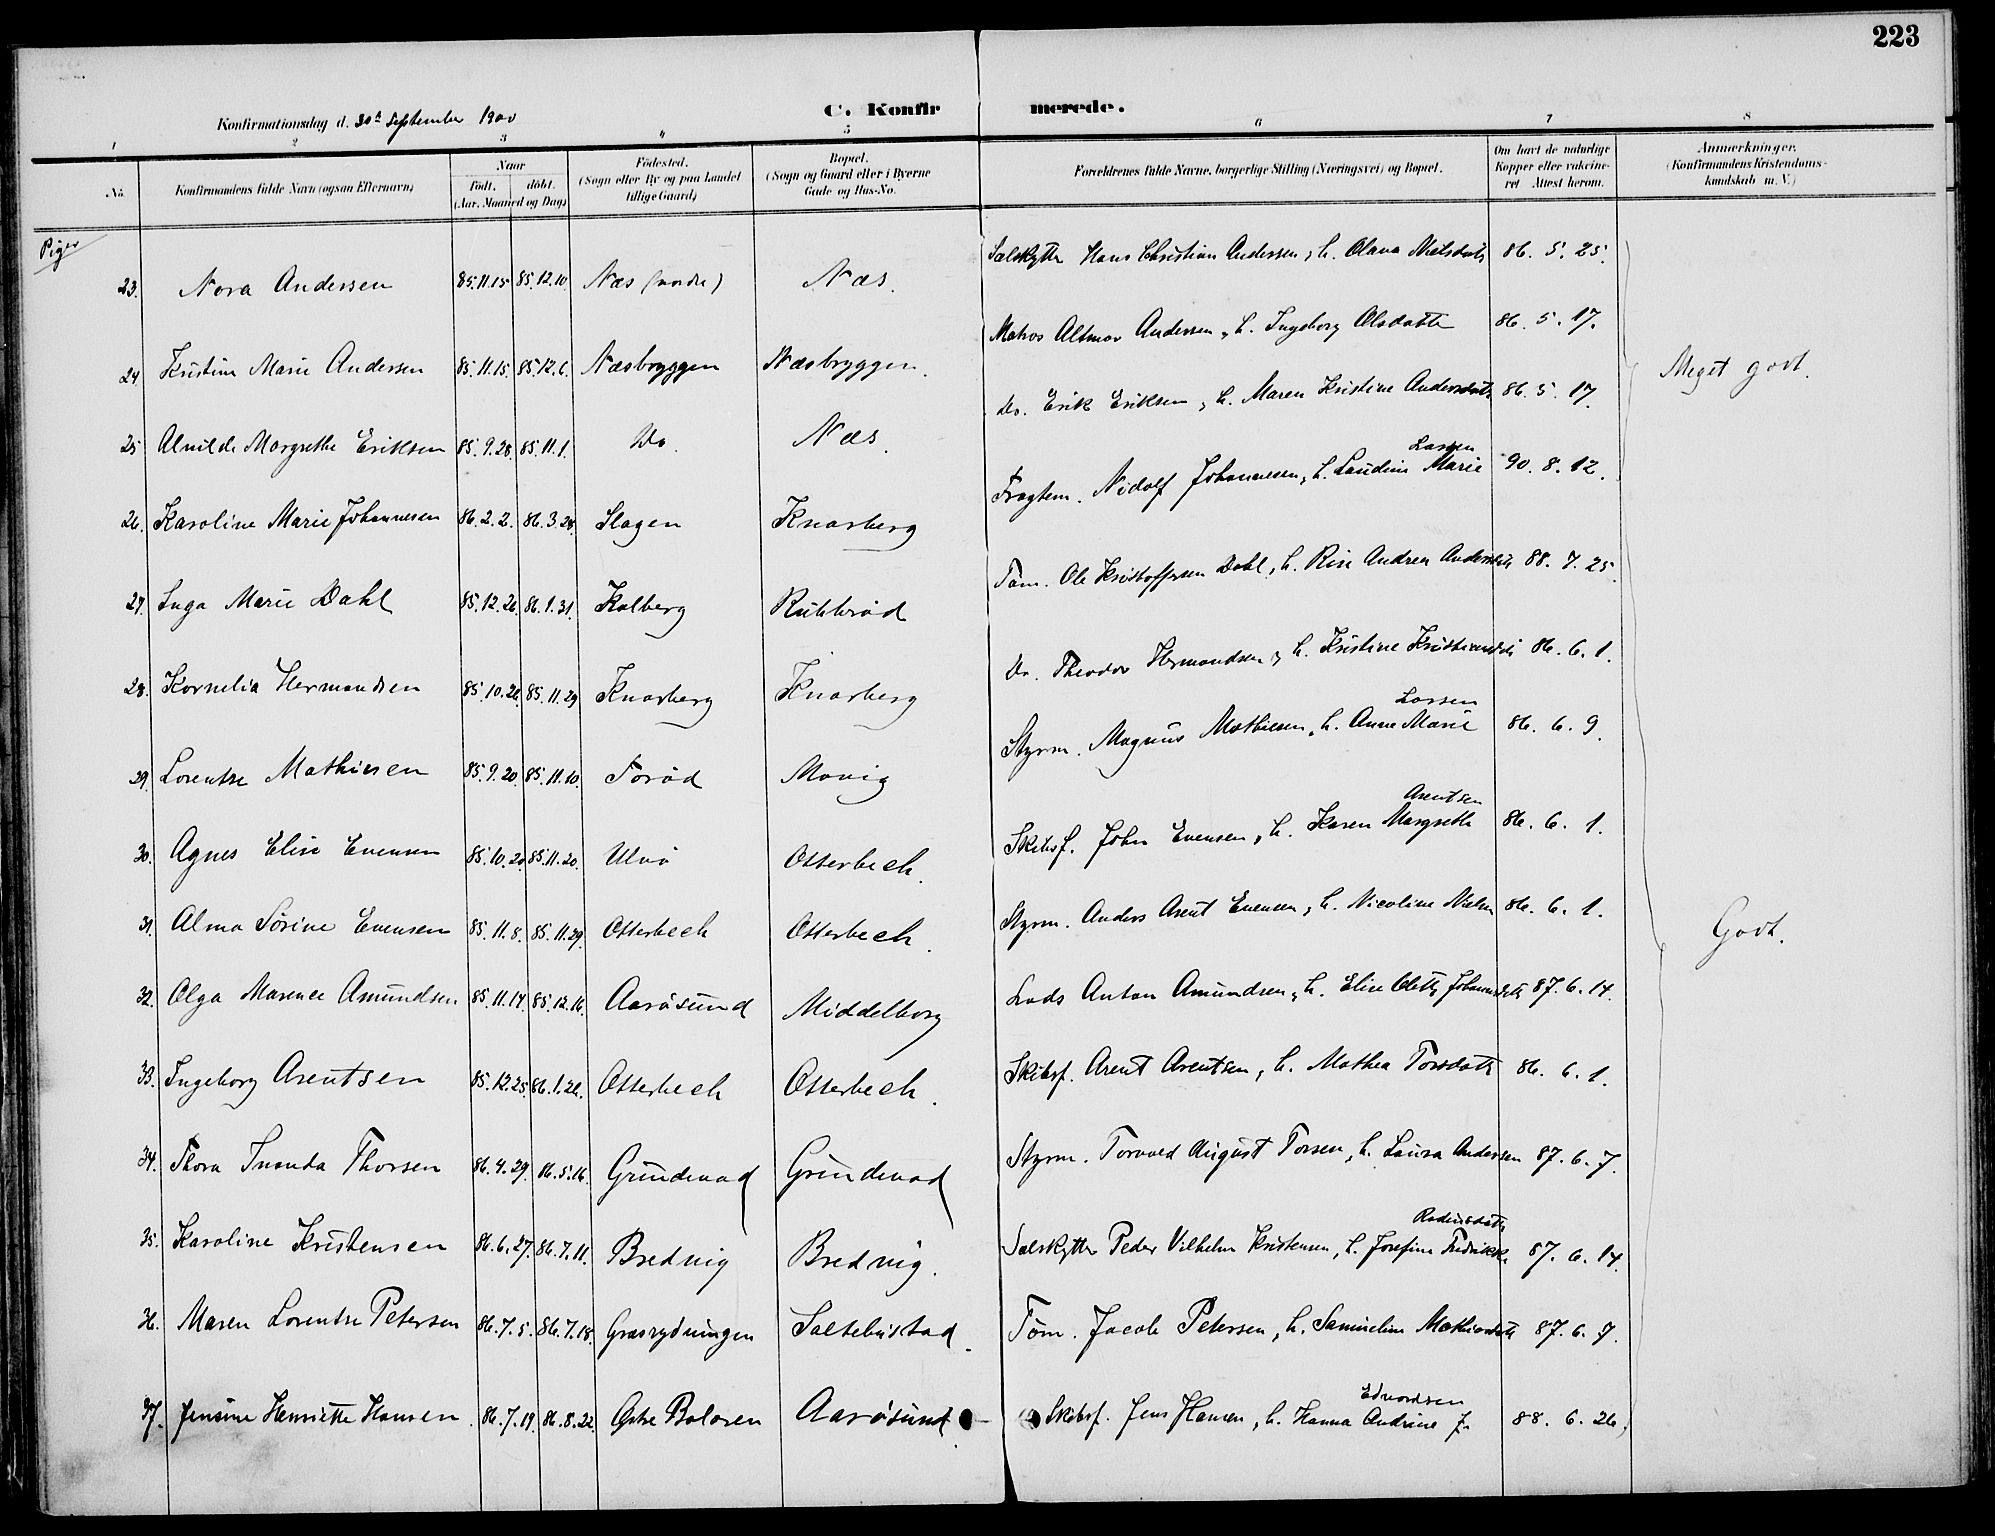 223
C. Konfirmerede.
Konfirmationsdag d. 30te September 1900
1 2 3 4 5 6 7 8
No. Konfirmandens fulde Navn (ogsaa Efternavn) Naar födt. döbt. (Aar, Maaned og Dag) Födested. (Sogn eller By og paa Landet tillige Gaard) Bopæl. (Sogn og Gaard eller i Byerne Gade og Hus-No. Forældrenes fulde Navne, borgerlige Stilling (Næringsvei) og Bopæl. Om havt de naturlige Kopper eller vakcineret Attest herom. Anmærkninger. (Konfirmandens Kristendomskundskab m. V.)
Piger
23. Nora Andersen 85.11.15 85.12.10. Næs (nordre) Næs. Sælskytter Hans Christian Andersen, h. Olava Nielsdatt 86. 5. 25.
24. Kristine Marie Andersen 85.11.15. 85.12.6. Næsbryggen Næsbryggen. Matros Altmar Andersen, h. Ingeborg Olsdatter 86. 5. 17. Meget godt.
25 Alvilde Margrethe Eriksen 85.9.28. 85.11.1. Do. Næs. Do. Erik Eriksen, h. Maren Kristine Andersdatt 86. 5. 17.
26. Karoline Marie Johannesen 86.2.2. 86.3.28. Slagen Knarberg Fragtem. Nidolf Johannesen, h. Laudine Marie Larsen 90. 8. 12.
27. Inga Marie Dahl 85.12.26. 86.1.31. Kalberg Rubberöd Töm. Ole Kristoffersen Dahl, h. Rise Andrea Andersdatt 88. 7. 25.
28. Kornelia Hermandsen 85.10.26. 85.11.29 Knarberg Knarberg Do. Theodor Hermandsen, h. Kristine Kristiansdt 86. 6. 1.
29. Lorentse Mathiesen 85.9.20. 85.11.10. Toröd Movig Styrm. Magnus Mathiesen, h. Anne Marie Larsen 86. 6. 9.
30. Agnes Elise Evensen 85.10.20 85.11.20. Ulvö Otterbech. Skibsf. John Evensen, h. Karen Margrethe Arentsen 86. 6. 1.
31. Alma Sörine Evensen 85.11.8. 85.11.29. Otterbech Otterbech. Styrm. Anders Arent Evensen, h. Nicoline Nielsen 86. 6. 1. Godt.
32. Olga Marence Amundsen 85.11.17. 85.12.16. Aarösund Middelborg Lods Anton Amundsen, h. Elise Olette Johannesdatt 87. 6. 14.
33. Ingeborg Arentsen 85.12.25. 86.1.26. Otterbech Otterbech. Skibsf. Arent Arentsen, h. Mathea Torsdatt 86. 6. 1.
34. Thora Thorsen 86.4.29. 86.5.16. Grindevad Grindevad Styrm. Torvald August Torsen, h. Laura Andersen 87. 6. 7.
35. Karoline Kristensen 86.6.27. 86.7.11. Bredvig Bredvig. Sælskytter Peder Vilhelm Kristensen, h. Josefine Fredrikke 87. 6. 14.
36. Maren Lorentse Petersen 86.7.5. 86.7.18. Græsrydningen Saltebustad. Töm. Jacob Petersen, h. Samueline Mathiasdatt 87. 6. 7.
37. Jensine Henriette Hansen. 86.7.19. 86.8.22. Östre Bolæren Aarösund. Skibsf. Jens Hansen, h. Hanna Andrine f. Edvardsen 88. 6. 26.